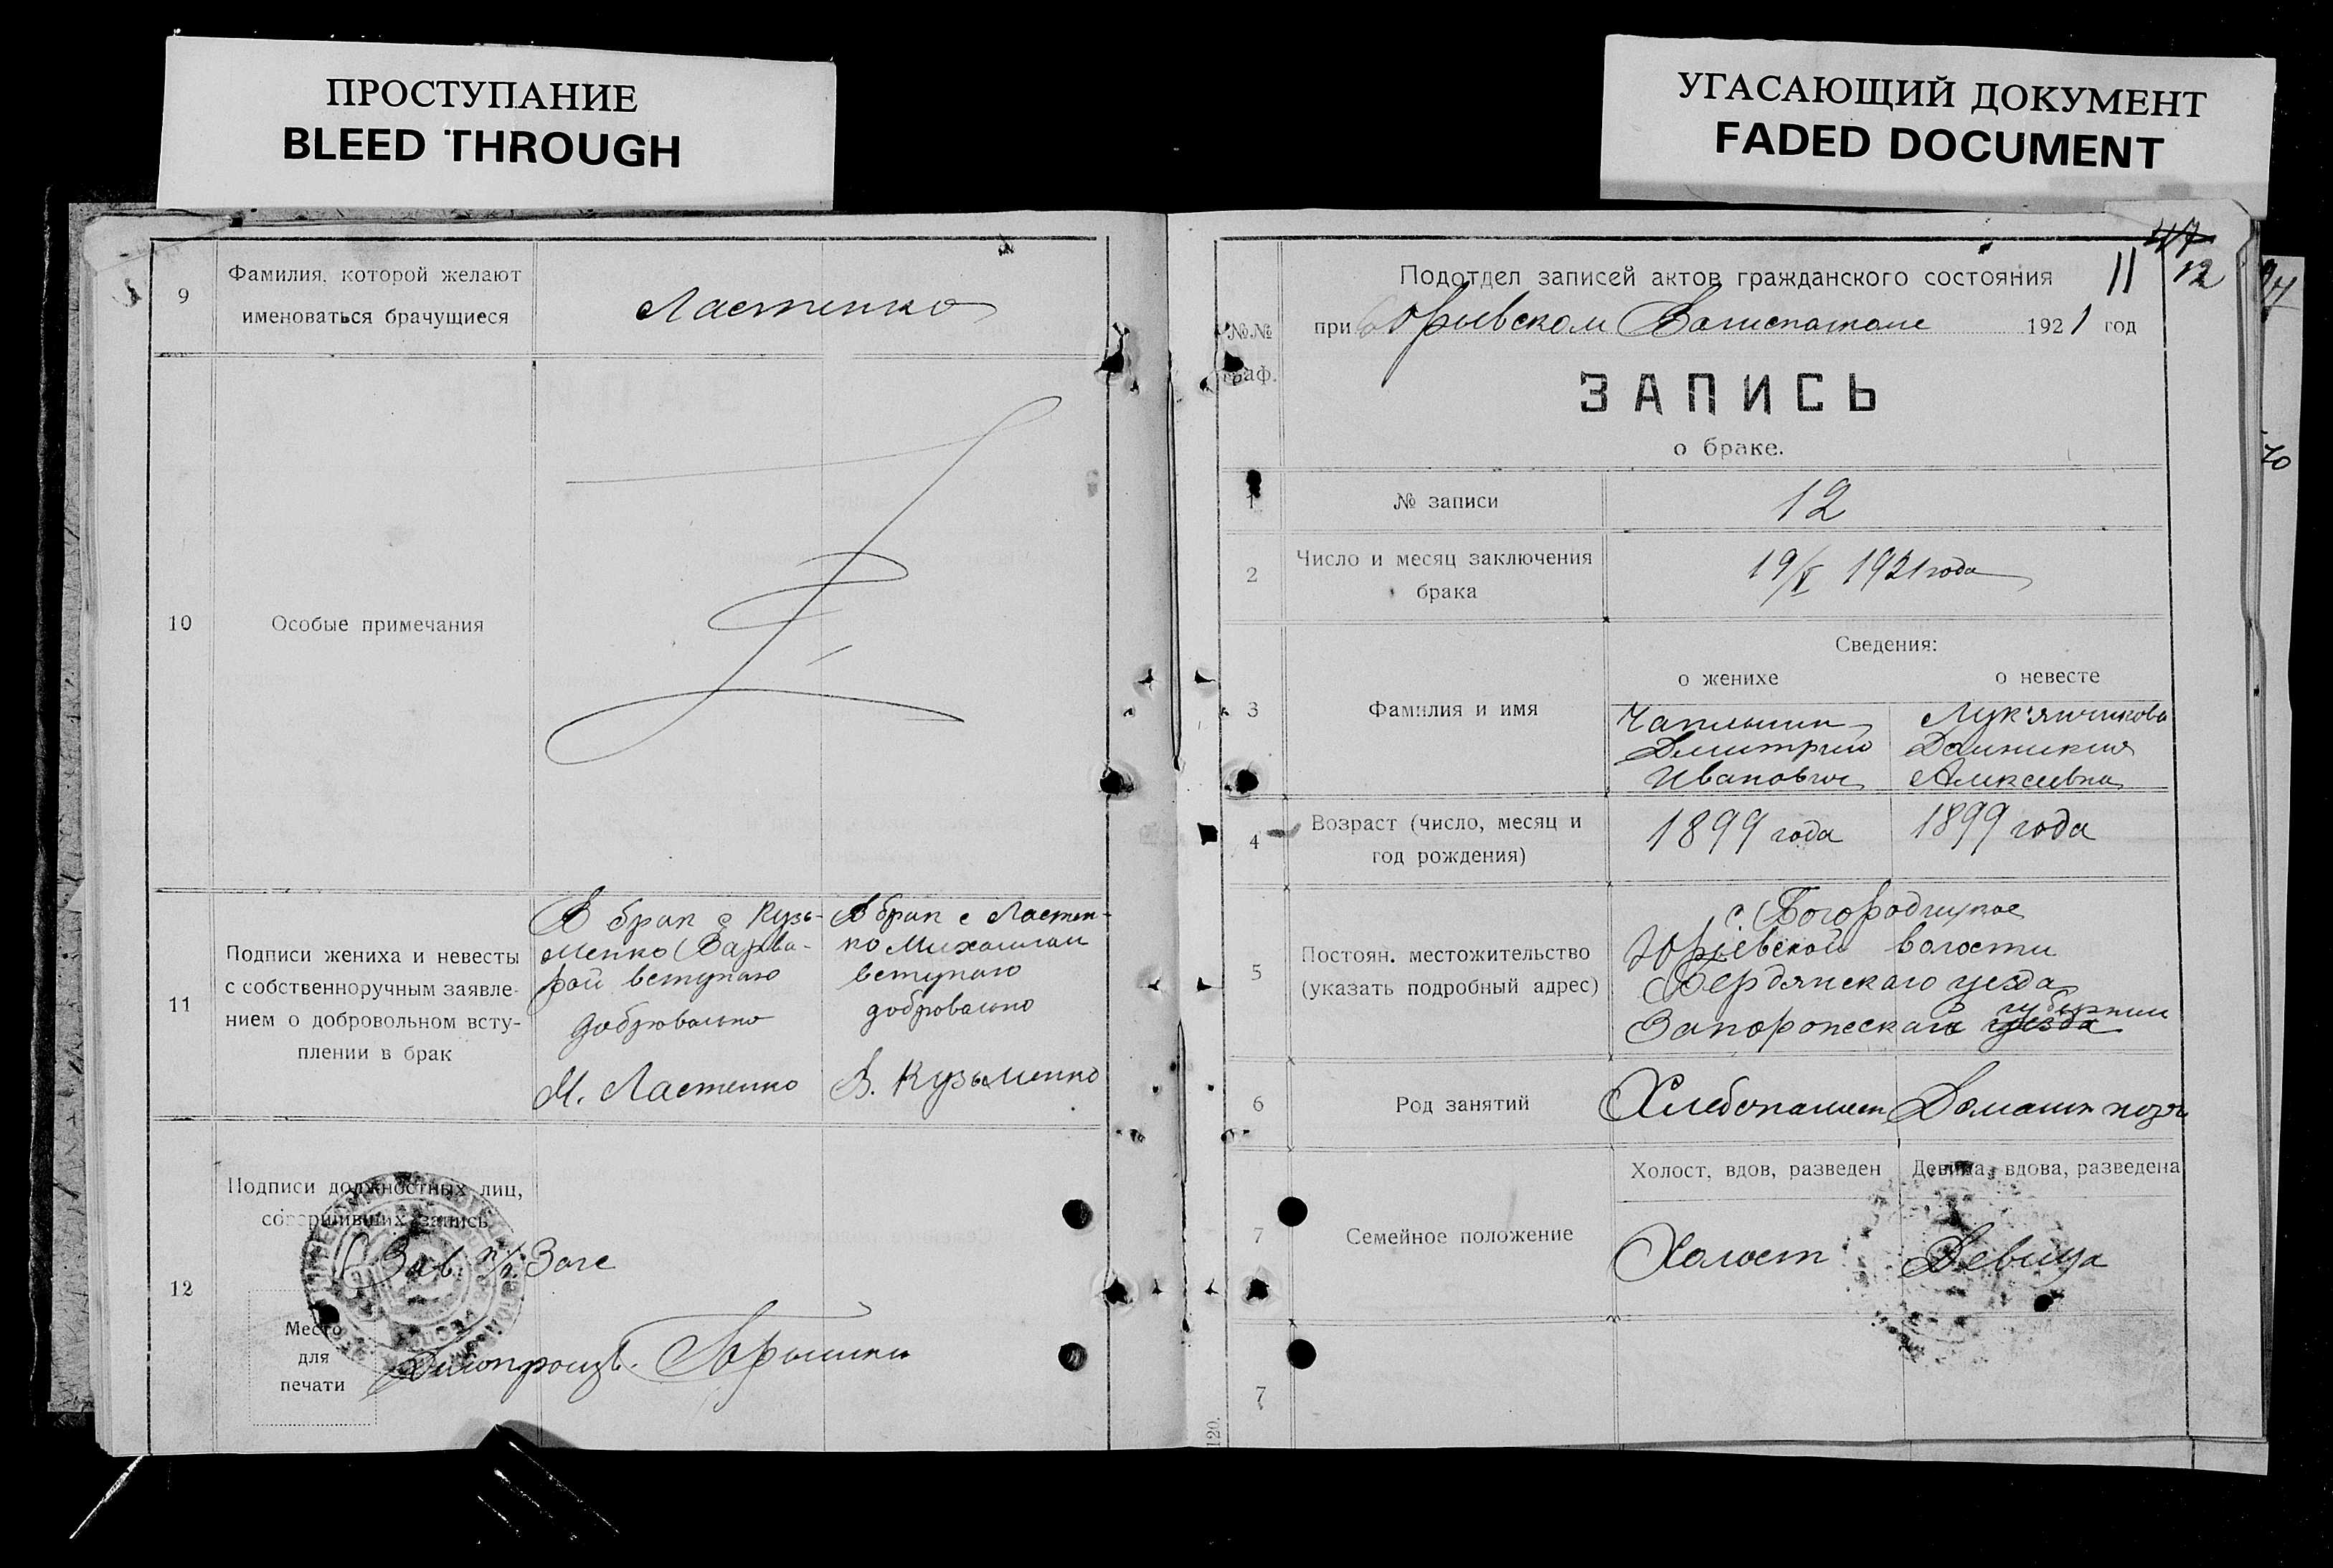 ПРОСТУПАНИЕ
BLEED THROUGH
УГАСАЮЩИЙ ДОКУМЕНТ
FADED DOCUMENT
9
Фамилия, которой желают
именоваться брачущиеся
Ластенко
10
Особые примечания
11
Подписи жениха и невесты
с собственноручным заявле-
нием о добровольном всту-
плении в брак
В брак с Кузь-
менко Варва-
рой вступаю
добровольно
М. Ластенко
В брак с Ластен-
ко Михаилом
вступаю
добровольно
В. Кузьменко
12
Подписи должностных лиц,
совершивших запись
Зав. п/о Загс
Место
для
печати
Делопроизв.
47
11 12
Подотдел записей актов гражданского состояния
при Юрьевском 1921 год
№№
граф.
ЗАПИСЬ
о браке.
1
№ записи
12
2
Число и месяц заключения
брака
19/V 1921 года
Сведения:
о женихе
о невесте
3
Фамилия и имя
Чаплыгин
Дмитрий
Иванович
Лук'янчикова
Домникия
Алексеевна
4
Возраст (число, месяц и
год рождения)
1899 года
1899 года
5
Постоян. местожительство
(указать подробный адрес)
с Богородицкое
Юрьевской волости
Бердянскаго уезда
губернии
Запорожескаго уезда
6
Род занятий
Хлебопашест
Домашн
7
Семейное положение
Холост, вдов, разведен
Девица, вдова, разведена
Холост
Девица
7
120.